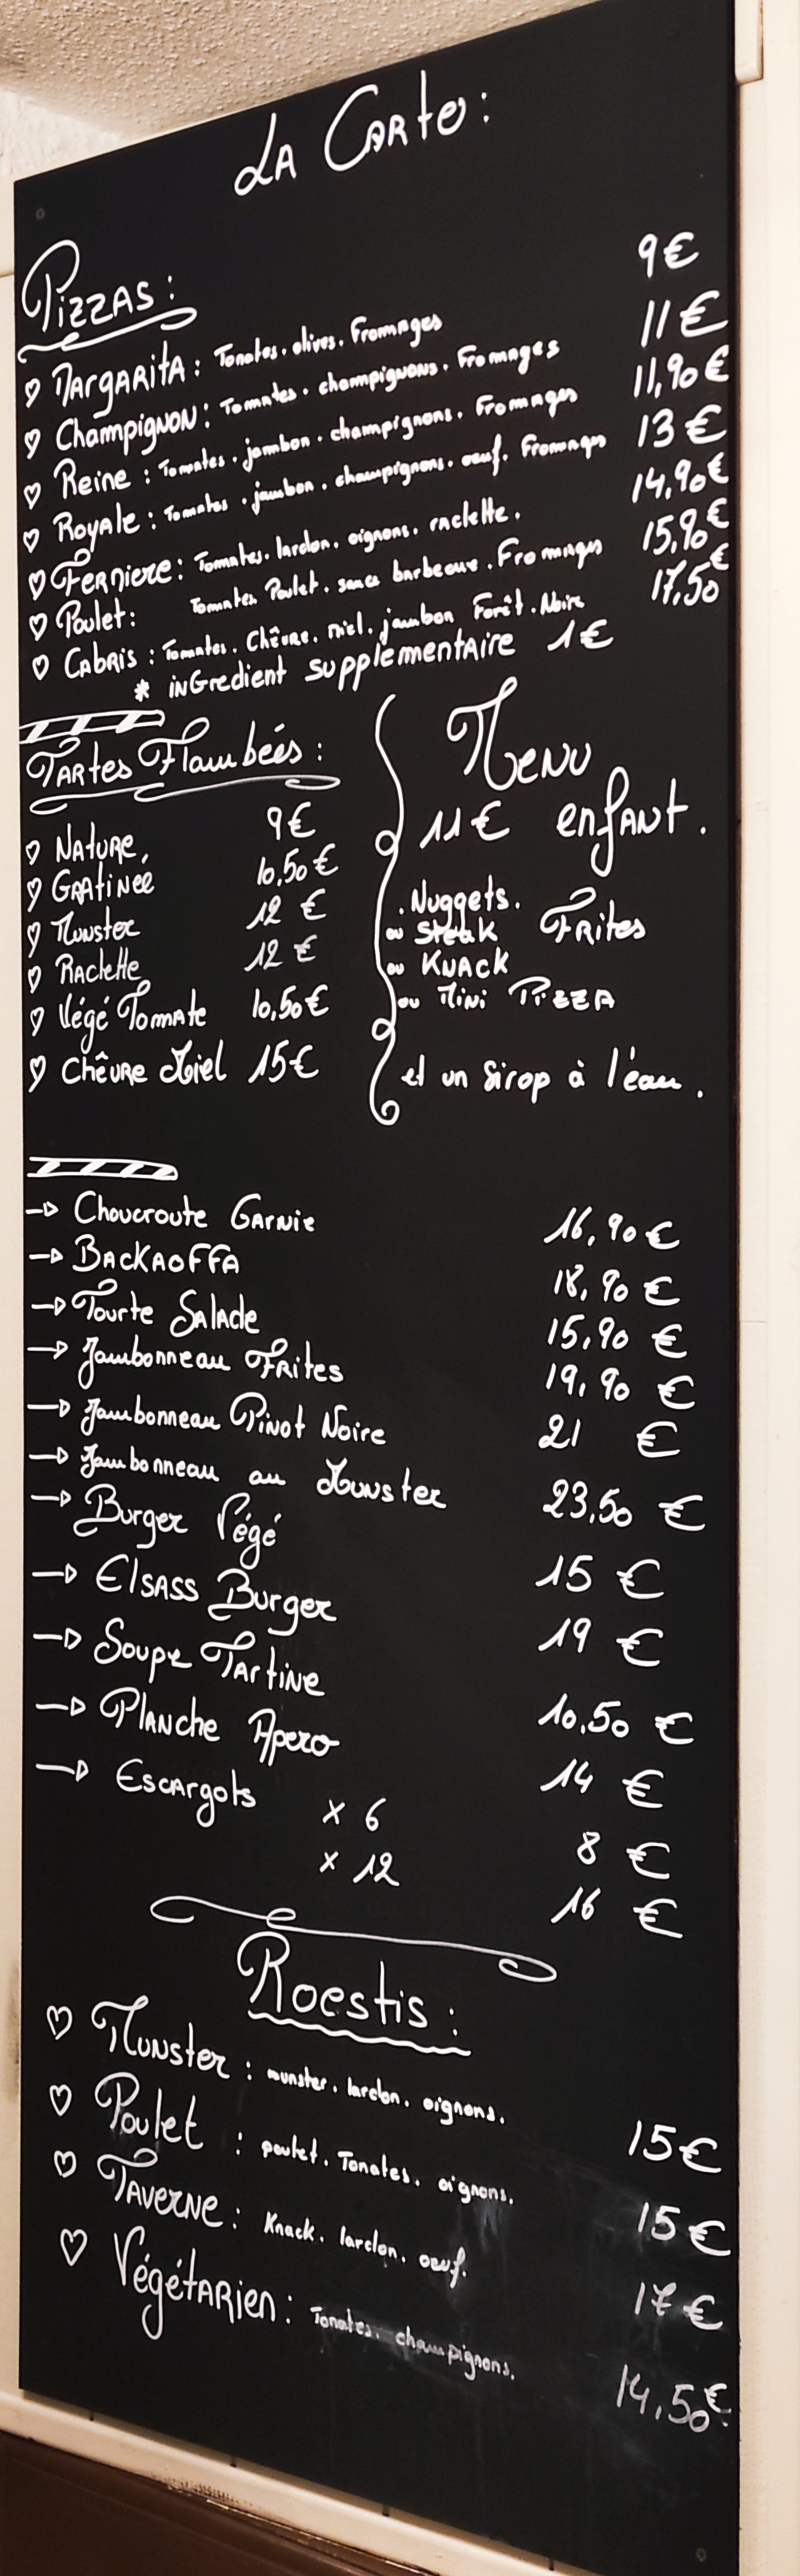 LA CARTE :
PIZZAS :
MARGARITA : Tomates. olives. Fromages 9€
Champignon : Tomates. champignons. Fromages 11€
Reine : Tomates. jambon. champignons. Fromages 11,90€
Royale : Tomates. jambon. champignons. oeuf. Fromages 13€
Fermiere : Tomates. lardon. oignons. raclette. 14,90€
Poulet : Tomates Poulet. sauce barbecue. Fromages 15,90€
CABRIS : Tomates. Chêvre. miel. jambon Forêt. Noire 17,50€
* inGredient supplementaire 1€
Tartes Flambées :
NATURE, 9€
GRATINEE 10,50€
Munster 12 €
Raclette 12 €
Végé Tomate 10,50€
Chêvre Miel 15€
Menu
11€ enfant.
. Nuggets.
ou Steak Frites
ou KNACK
ou Mini PIZZA
et un sirop à l'eau.
Choucroute Garnie 16,90€
BACKAOFFA 18,90 €
Tourte Salade 15,90 €
Jambonneau Frites 19,90 €
Jambonneau Pinot Noire 21 €
Jambonneau au Munster 23,50 €
Burger Végé 15 €
Elsass Burger 19 €
Soupe Tartine 10,50 €
Planche Apero 14 €
Escargots x 6 8 €
x 12 16 €
Roestis :
Munster : munster. lardon. oignons. 15€
Poulet : poulet. Tomates. oignons. 15€
Taverne : Knack. lardon. oeuf. 17€
Végétarien : Tomates. champignons. 14,50€